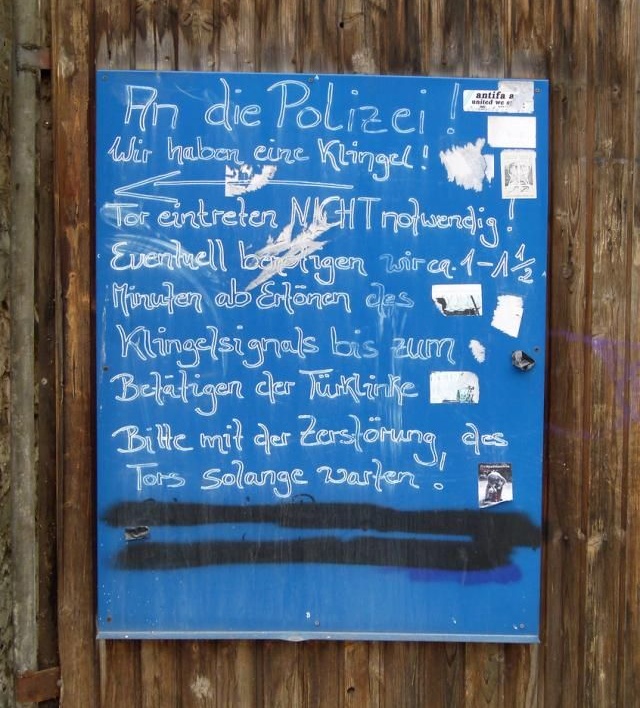 An die Polizei!
Wir haben eine Klingel!
Tor eintreten NICHT notwendig!
Eventuell benötigen wir ca. 1-1 1/2
Minuten ab Ertönen des
Klingelsignals bis zum
Betätigen der Türklinke
Bitte mit der Zerstörung des
Tors solange warten!
antifa a
united we